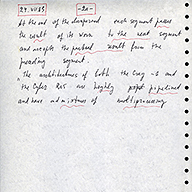 24.VII.83 -20-
At the end of the timeperiod each segment passes
the result of its work to the next segment
and accepts the partial result from the
preceding segment.
The architectures of both the Cray-1 and
the Cyber 205 are highly pipelined
and have admixtures of multiprocessing